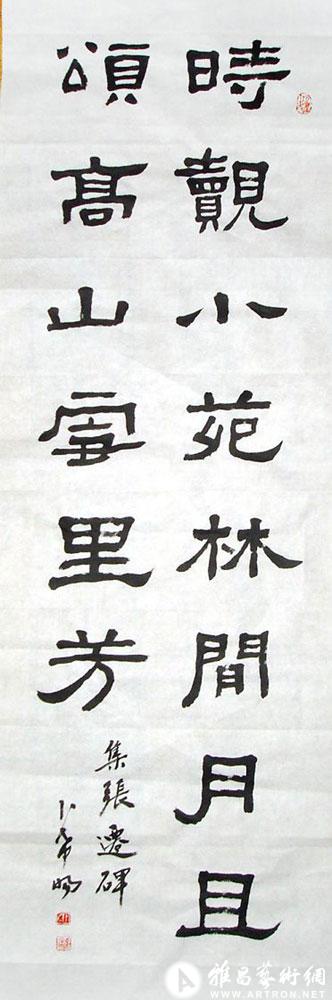 時觀小苑林間月且
頌高山雪里芳
集張遷碑
卜希暘
雅昌藝術網
WWW.ARTRON.NET